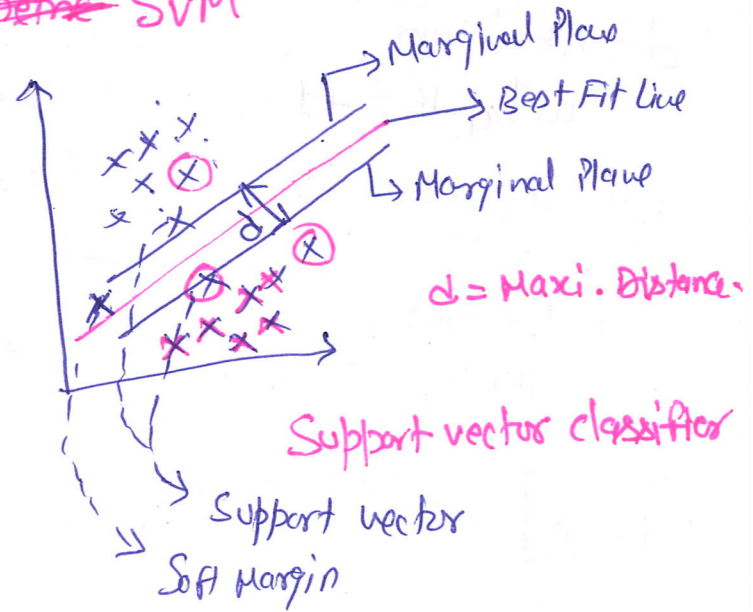 SVM
Marginal Plane
Best Fit Line
Marginal Plane
d
d = Maxi. Distance.
Support vector classifier
Support vector
Soft Margin